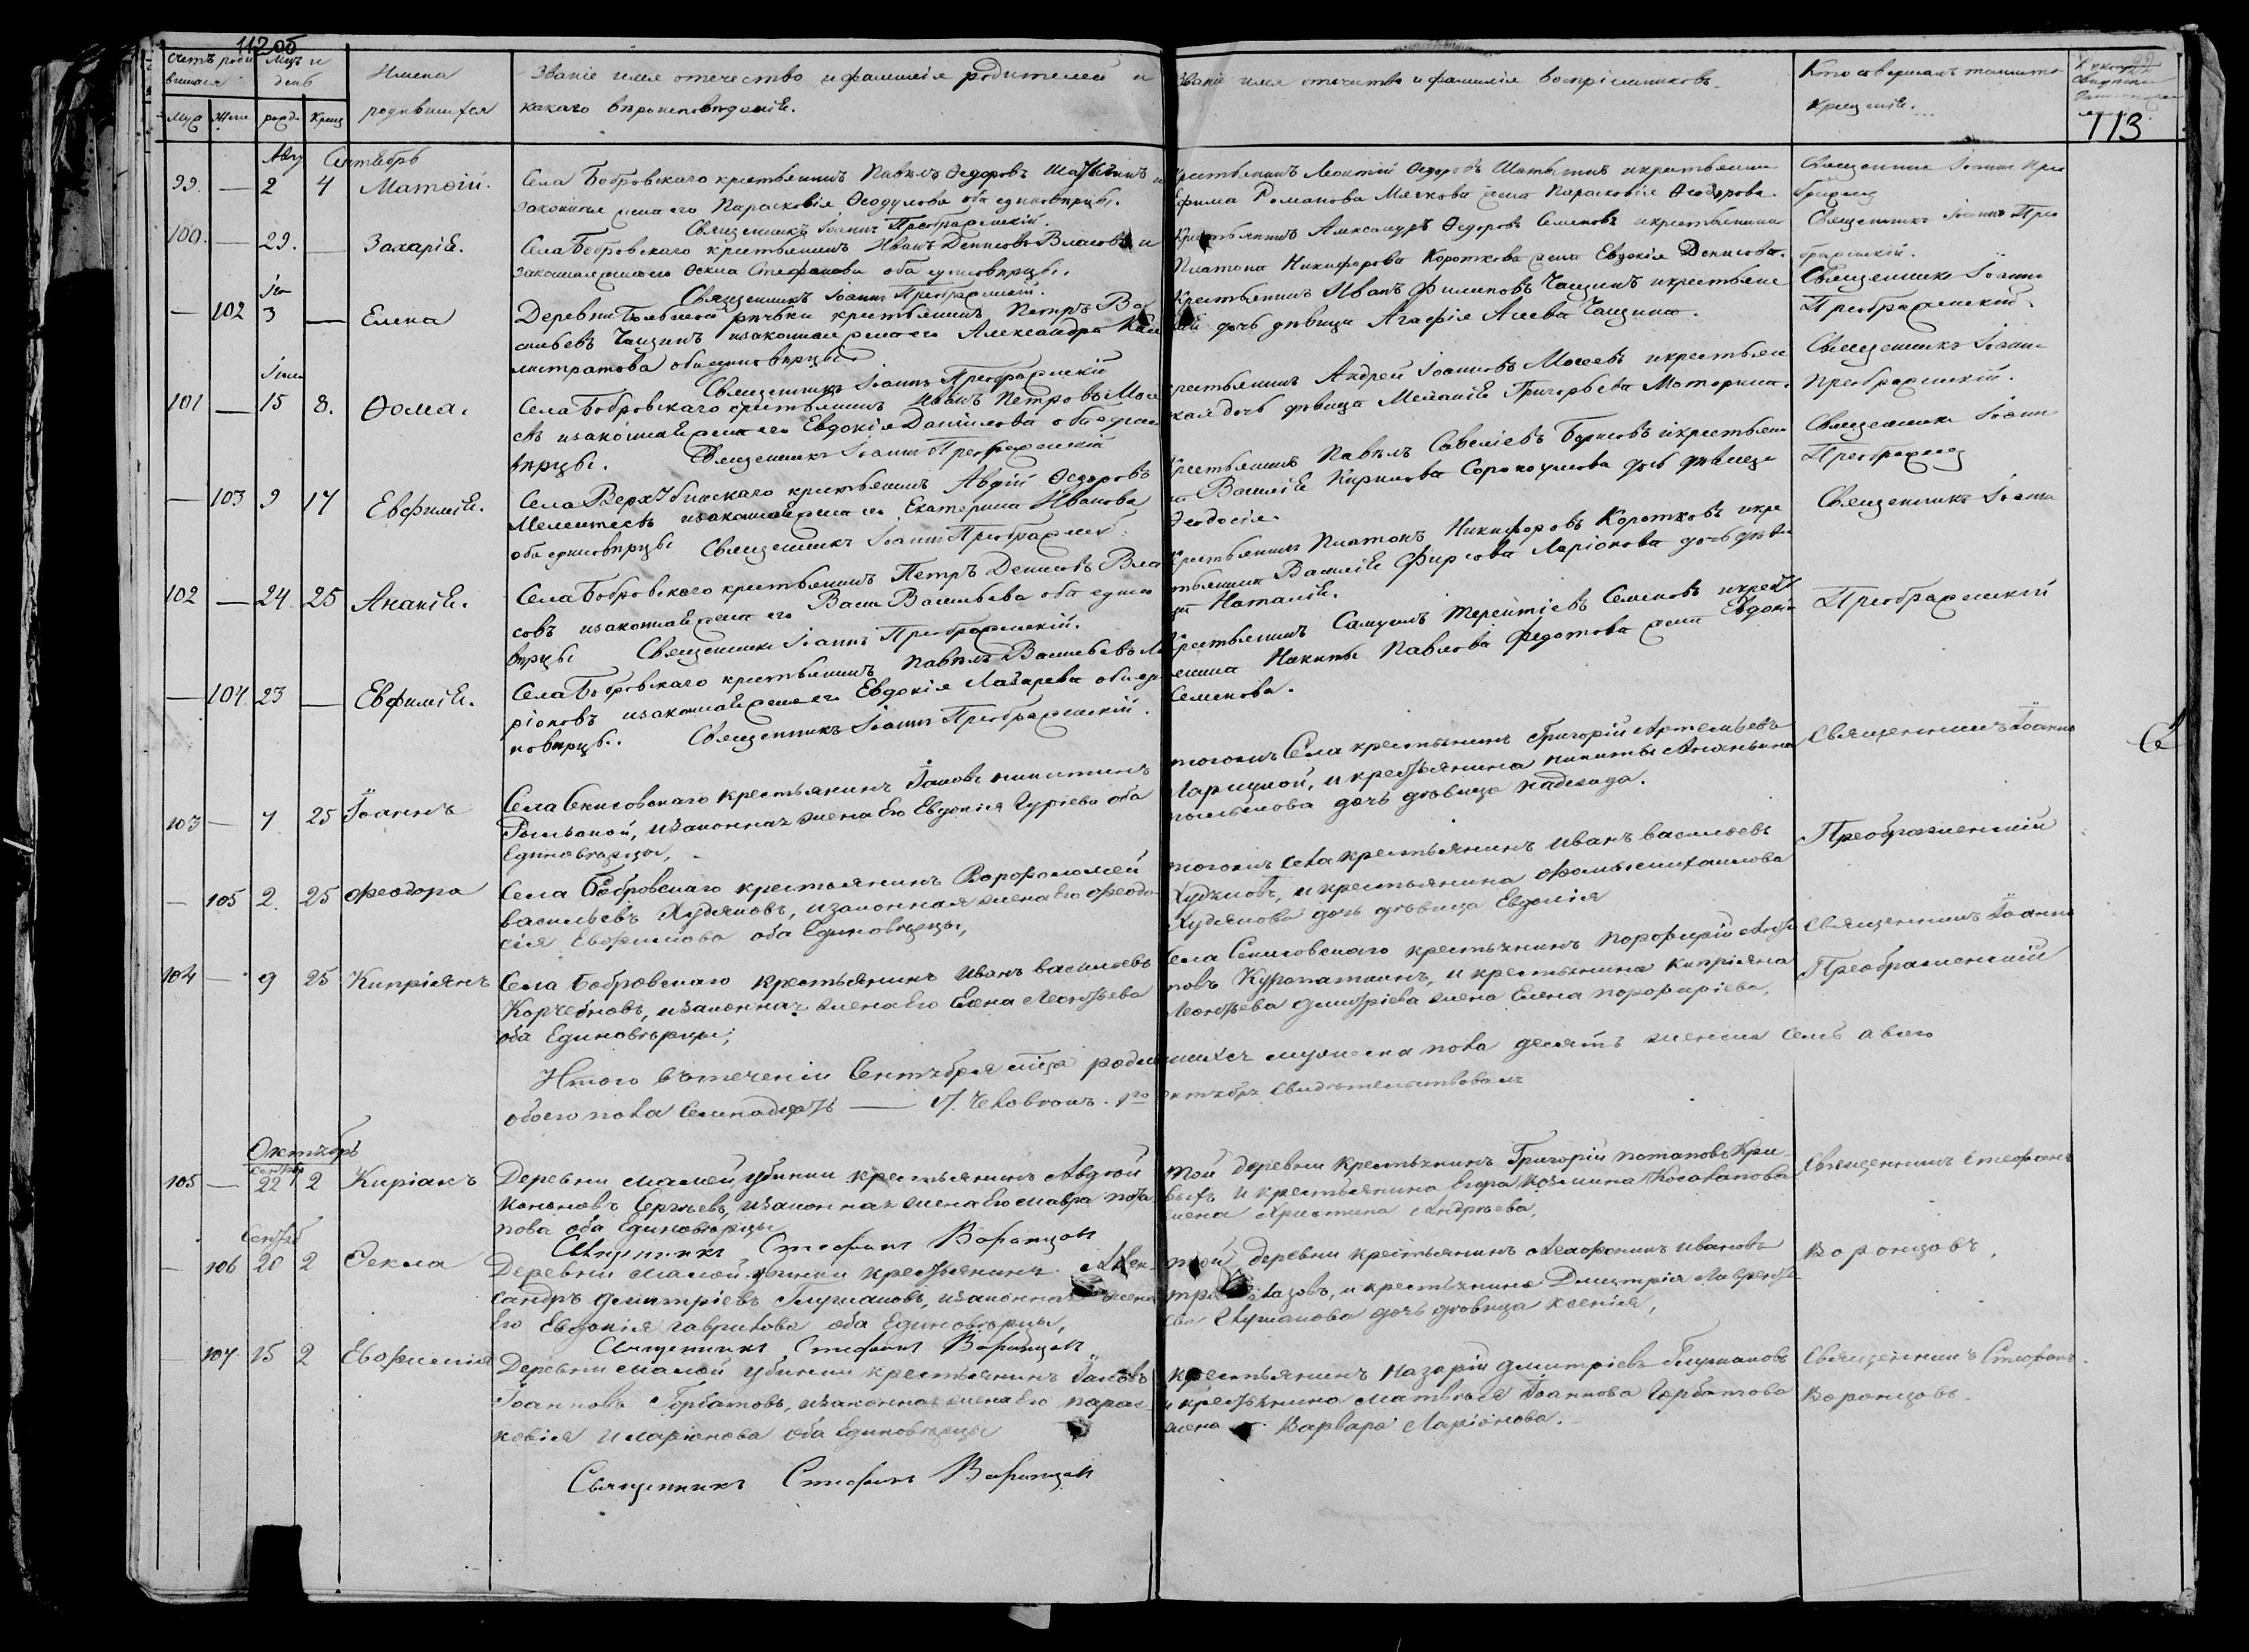 112 об
Счетъ роди
вшихся
Мцъ и
день
Имена
родившихся
Званіе имя отечество и фамилія родителей и
какаго вѣроисповѣданія.
Званіе имя отечество и фамилія воспріемниковъ.
Кто совершалъ таинство
крещенія.
Муж Жен рожд Крещ
113
Авгу Сентябрь
99. — 2 4 Матѳій.
Села Бобровскаго крестьянинъ Павелъ Ѳедоровъ
законная жена его Парасковія Ѳеодулова оба единовѣрцы.
Священникъ Іоаннъ Преображенскій.
Крестьянинъ Леонтій Ѳедоровъ и крестьянина
Ефима Романова Мячкова жена Парасковія Ѳеодорова.
Священникъ Іоаннъ Прео
бражен
100. — 29. — Захарія.
Села Бобровскаго крестьянинъ Иванъ Денисовъ Власовъ и
законная жена его Ѳекла Стефанова оба единовѣрцы.
Священникъ Іоаннъ Преображенскій.
Крестьянинъ Александръ Ѳедоровъ Семеновъ и крестьянина
Платона Никифорова Короткова жена Евдокія Денисова.
Священникъ Іоаннъ Прео
браженскій.
— 102 3 — Елена
Деревни Большой рѣчки крестьянинъ Петръ Ва
сильевъ Чащинъ и законная жена его Александра Кали
стратова оба единовѣрцы
Священникъ Іоаннъ Преображенскій
Крестьянинъ Иванъ Филиповъ Чащинъ и крестьян
дочь дѣвица Агафія Чащина.
Священникъ Іоаннъ
Преображенскій.
101 — 15 8. Ѳома.
Села Бобровскаго крестьянинъ Иванъ Петровъ Мос
евъ и законная жена его Евдокія Даніилова оба едино
вѣрцы. Священникъ Іоаннъ Преображенскій
крестьянинъ Андрей Іоанновъ Мосеевъ и крестьян
ская дочь дѣвица Меланія Григорьева Маторкина.
Священникъ Іоаннъ
Преображенскій.
— 103 9 17 Евфимія.
Села ВерхУбинскаго крестьянинъ Авдій Ѳедоровъ
Мелентьевъ и законная жена его Екатерина Иванова
оба единовѣрцы Священникъ Іоаннъ Преображенск
Крестьянинъ Павелъ Савеліевъ Борисовъ и крестьян
Василія Кирилова Сорокоумова дочь дѣвица
Ѳеодосія.
Священникъ Іоанн
Преображен
102 — 24 25 Ананія.
Села Бобровскаго крестьянинъ Петръ Денисовъ Вла
совъ и законная жена его Васа Васильева оба едино
вѣрцы Священникъ Іоаннъ Преображенскій.
Крестьянинъ Платонъ Никифоровъ Коротковъ и кре
стьянина Василія Фирсова Ларіонова дочь дѣви
ца Наталія.
Священникъ Іоанн
Преображенскій
— 104 23 — Евфимія.
Села Бобровскаго крестьянинъ Павелъ Васильевъ Ла
ріоновъ и законная жена его Евдокія Лазарева оба еди
новѣрцы. Священникъ Іоаннъ Преображенскій.
Крестьянинъ Самуилъ Терентіевъ Семеновъ и крест
янина Никиты Павлова Федотова жена Евдокія
Семенова.
103 — 7 25 Іоаннъ
Села Секисовскаго крестьянинъ Іаковъ никитинъ
Рыльской, и законная жена Его Евдокія Гуріева оба
Единовѣрцы,
тогожъ Села крестьянинъ Григорій Артемьевъ
Ларицкой, и крестьянина никиты Ананьина
дочь дѣвица надежда.
Священникъ Іоаннъ
Преображенскій
— 105 2. 25 Феодора
Села Бобровскаго крестьянинъ Ворфоломей
васильевъ Худяковъ, и законная жена Его феодо
сія Евфимова оба Единовѣрцы,
тогожъ села крестьянинъ иванъ васильевъ
Худяковъ, и крестьянина фомы михаилова
Худякова дочь дѣвица Евдокія
104 — 9 25 Кипріянъ
Села Бобровскаго крестьянинъ иванъ васильевъ
и законная жена Его Елена Леонтьева
оба Единовѣрцы;
Села Секисовскаго крестьянинъ порофирій
Куропаткинъ, и крестьянина кипріяна
Леонтьева дмитріева жена Елена порофиріева,
Священникъ Іоаннъ
Преображенскій
Итого въ теченіи Сентября мца родившихся мужеска пола десять женска семь а всего
обоего пола семнадцать — 17. человѣкъ. 1го октября свидетельствовалъ
Октябрь
105 — Сентяб 22 2 Киріакъ
Деревни малой убинки крестьянинъ Авдѣй
кононовъ Сергѣевъ, и законная жена Его мавра пота
пова оба Единовѣрцы
Священникъ Стефанъ Воронцовъ
той деревни крестьянинъ Григорій потаповъ Кри
выхъ и крестьянина Егора козмина Косолапова
жена христина Андрѣева,
Священникъ Стефанъ
Воронцовъ,
Сентяб
— 106 20 2 Фекла
Деревни малой убинки крестьянинъ Алек
сандръ дмитріевъ Глушаковъ, и законная жена
Его Евдокія гаврилова оба Единовѣрцы,
Священникъ Стефанъ Воронцовъ
той деревни крестьянинъ иванов
и крестьянина Дмитрія Лаврентье
ва Глушакова дочь дѣвица ксенія,
— 107 15 2 Евфимія
Деревни малой убинки крестьянинъ Іаковъ
Іоанновъ Горбатовъ, и законная жена Его парас
ковія иларіонова оба Единовѣрцы
Священникъ Стефанъ Воронцовъ
крестьянинъ назарій дмитріевъ Глушаковъ
и крестьянина матвѣя Іоаннова Горбатова
жена Варвара Ларіонова.
Священникъ Стефанъ
Воронцовъ.